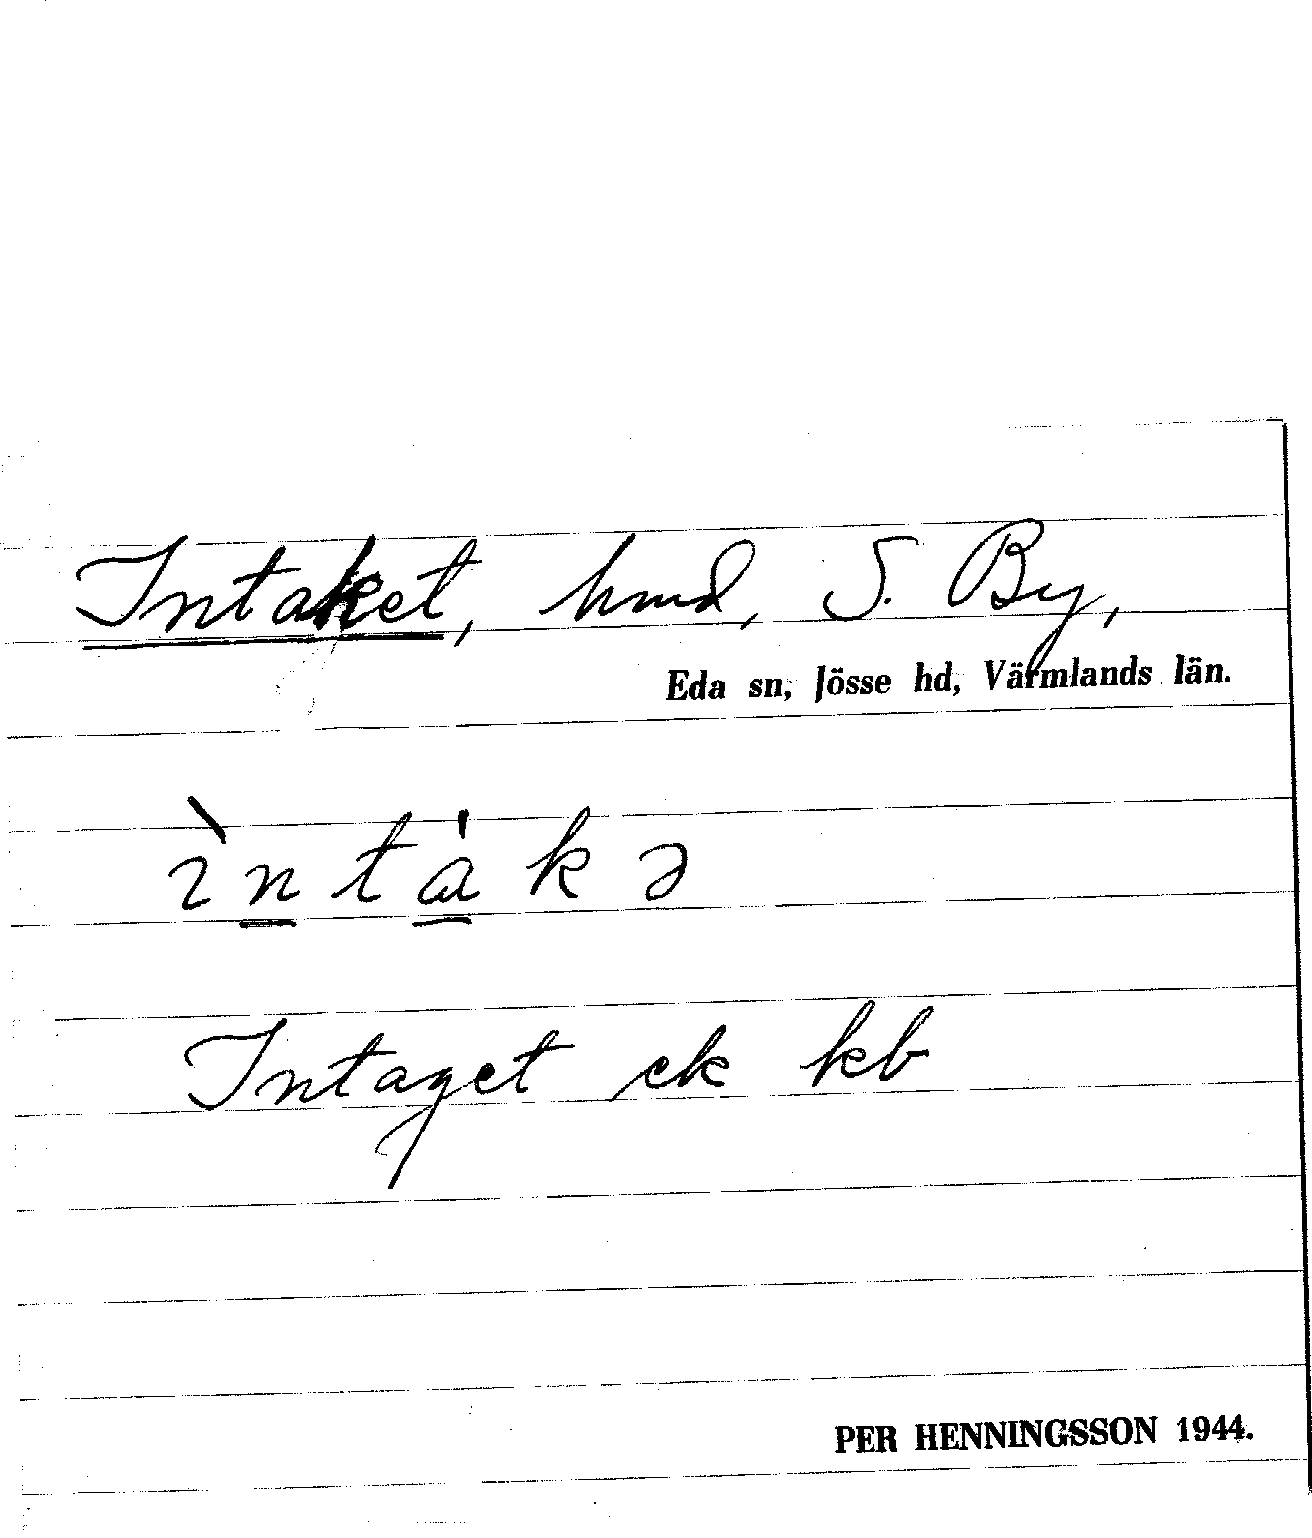 Intaket, hmd, S. By,
Eda sn, Jösse hd, Värmlands län.
ìntàkə
Intaget ek kb
PER HENNINGSSON 1944.